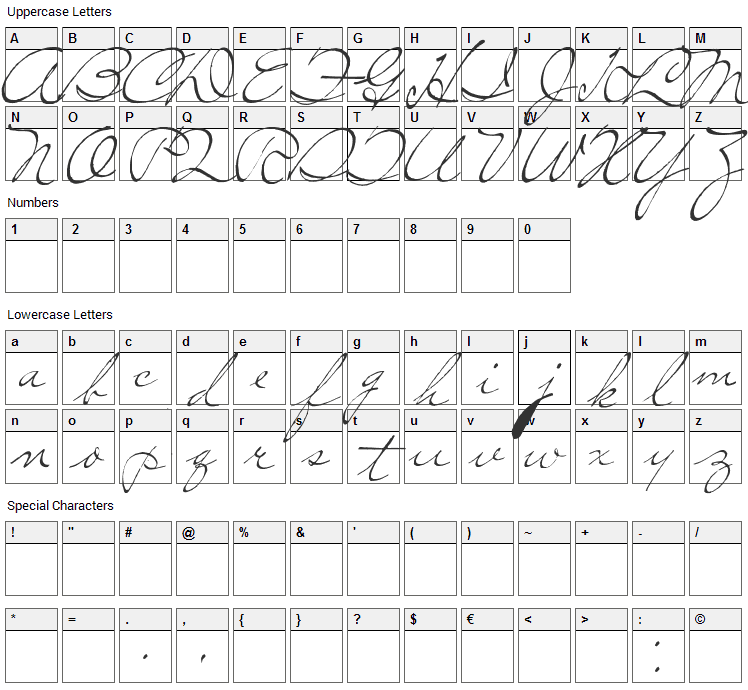 Uppercase Letters
A B C D E F G H I J K L M
A B C D E F G H I J K L M
N O P Q R S T U V W X Y Z
N O P Q R S T U V W X Y Z
Numbers
1 2 3 4 5 6 7 8 9 0
Lowercase Letters
a b c d e f g h I j k l m
a b c d e f g h i j k l m
n o p q r s t u v w x y z
n o p q r s t u v w x y z
Special Characters
! " # @ % & ' ( ) ~ + - /
* = . , { } ? $ € < > : ©
. , :